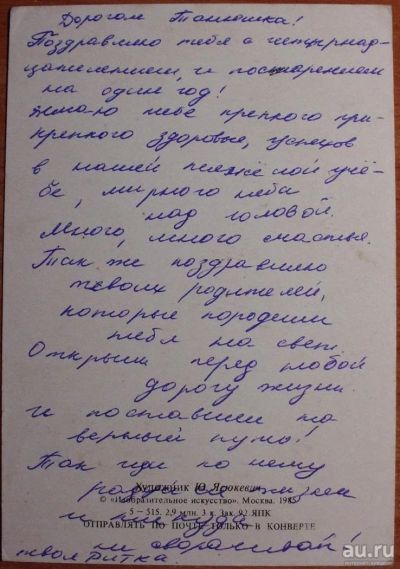 Дорогая Танюшка!
Поздравляю тебя с четырнад-
цатилетием, и постарением
на один год!
Желаю тебе крепкого пре-
крепкого здоровья, успехов
в нашей тяжёлой учё-
бе, мирного неба
над головой.
Много, много счастья.
Так же поздравляю
твоих родителей,
которые породили
тебя на свет.
Открыли перед тобой
дорогу жизни
и поставили на
верный путь!
Так иди по нему
радуйся жизни
и никуда
не сворачивай!
твоя Ритка
Художник Ю. Ясюкевич
© «Изобразительное искусство». Москва. 1985
5 — 515. 2,9 млн. 3 к. Зак. 92. ЯПК
ОТПРАВЛЯТЬ ПО ПОЧТЕ ТОЛЬКО В КОНВЕРТЕ
au.ru